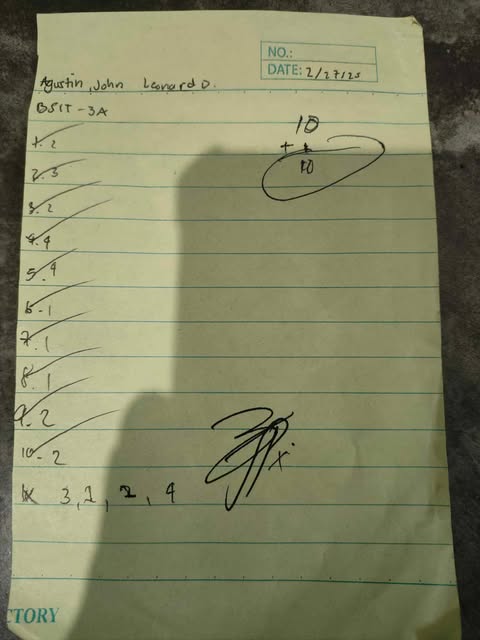 NO.:
DATE: 2/27/25
Agustin, John Leonard D.
BSIT - 3A
10
+
10
1. 2
2. 3
3. 2
4. 4
5. 4
6 - 1
7. 1
8. 1
9. 2
10 - 2
3, 1, 2, 4
CTORY